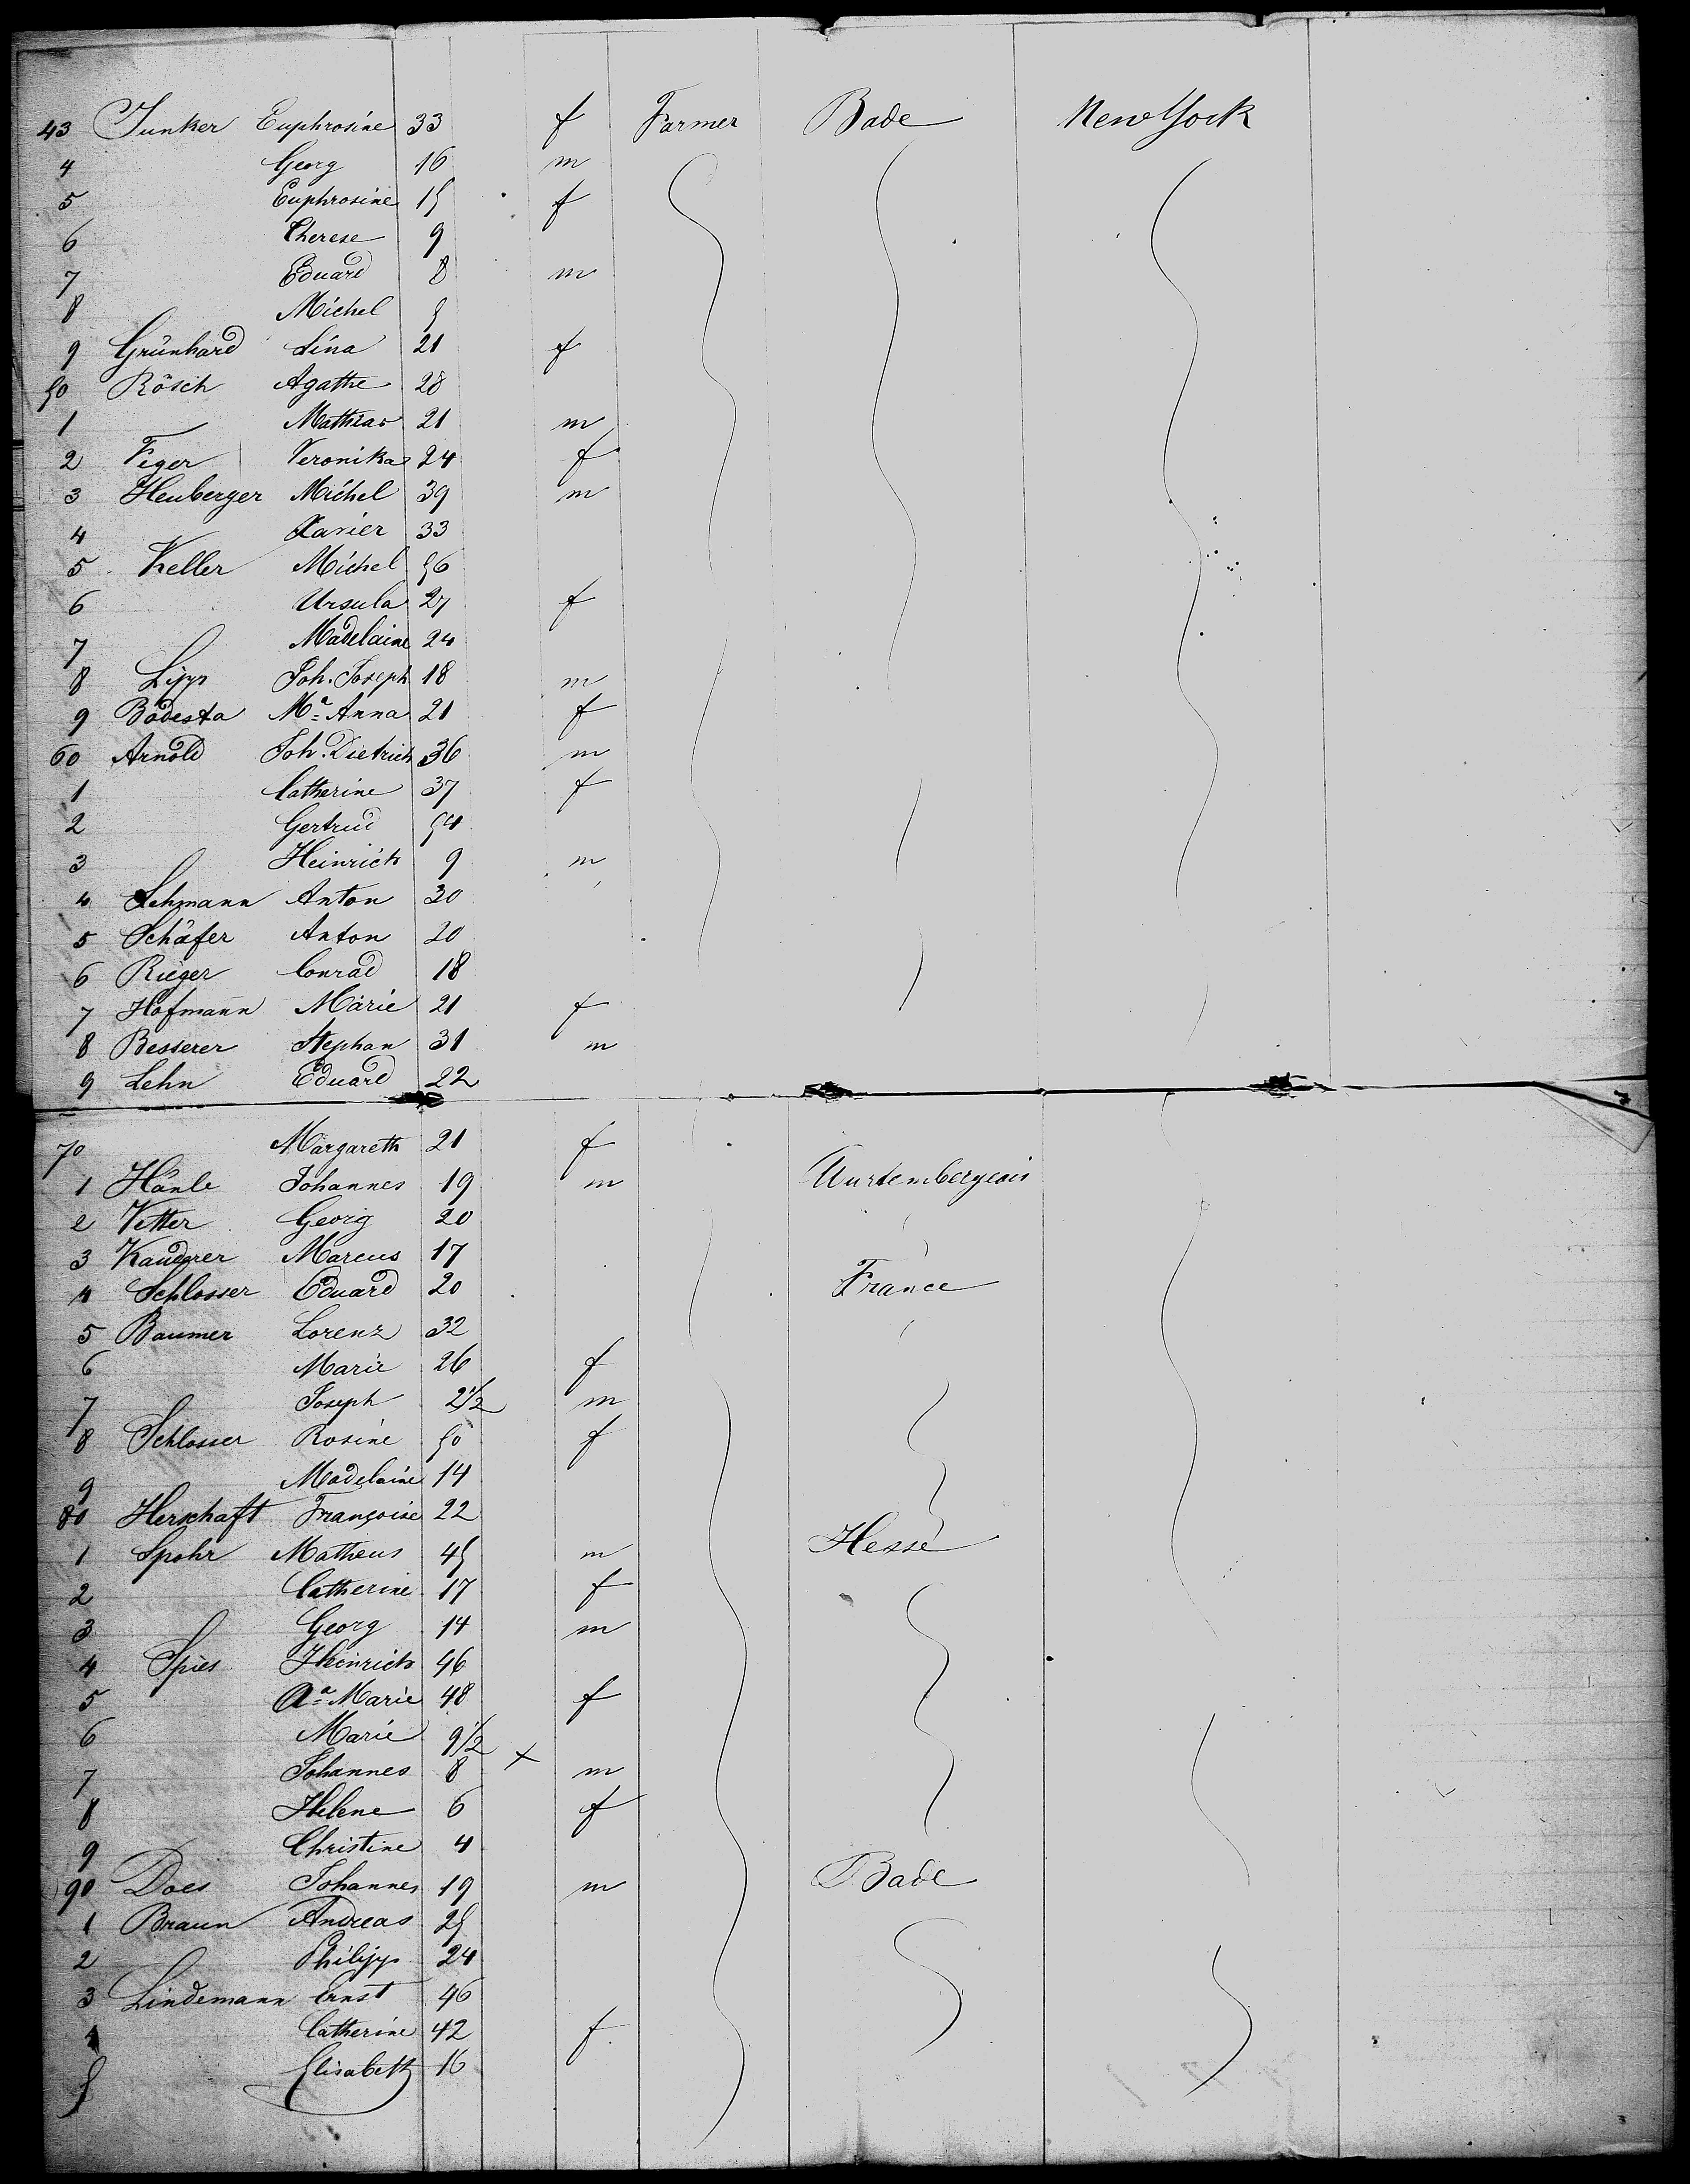 43 Junker Euphrosine 33 f Farmer Bade New York
4 Georg 16 m
5 Euphrosine 15 f
6 Therese 9
7 Eduard 8 m
8 Michel 5
9 Grünhard Lina 21 f
50 Rösch Agathe 28
1 Mathias 21 m
2 Feger Veronika 24 f
3 Heuberger Michel 39 m
4 Xavier 33
5 Keller Michel 56
6 Ursula 27 f
7 Madelaine 24
8 Lipp Joh. Joseph 18 m
9 Badesta Ma Anna 21 f
60 Arnold Joh. Dietrich 36 m
1 Catherine 37 f
2 Gertrud 54
3 Heinrich 9 m
4 Lehmann Anton 30
5 Schäfer Anton 20
6 Rieger Conrad 18
7 Hofmann Marie 21 f
8 Besserer Stephan 31 m
9 Lehn Eduard 22
70 Margareth 21 f
1 Hänle Johannes 19 m Wurtembergeois
2 Vetter Georg 20
3 Kauderer Marcus 17
4 Schlosser Eduard 20 France
5 Baumer Lorenz 32
6 Marie 26 f
7 Joseph 2 1/2 m
8 Schlosser Rosine 50 f
9 Madelaine 14
80 Herschaft Françoise 22
1 Spohr Matheus 45 m Hesse
2 Catherine 17 f
3 Georg 14 m
4 Spies Heinrich 46
5 Aa Marie 48 f
6 Marie 9 1/2
7 Johannes 8 x m
8 Helene 6 f
9 Christine 4
90 Does Johannes 19 m Bade
1 Braun Andreas 25
2 Philipp 24
3 Lindemann Ernst 46
4 Catherine 42 f
5 Elisabeth 16